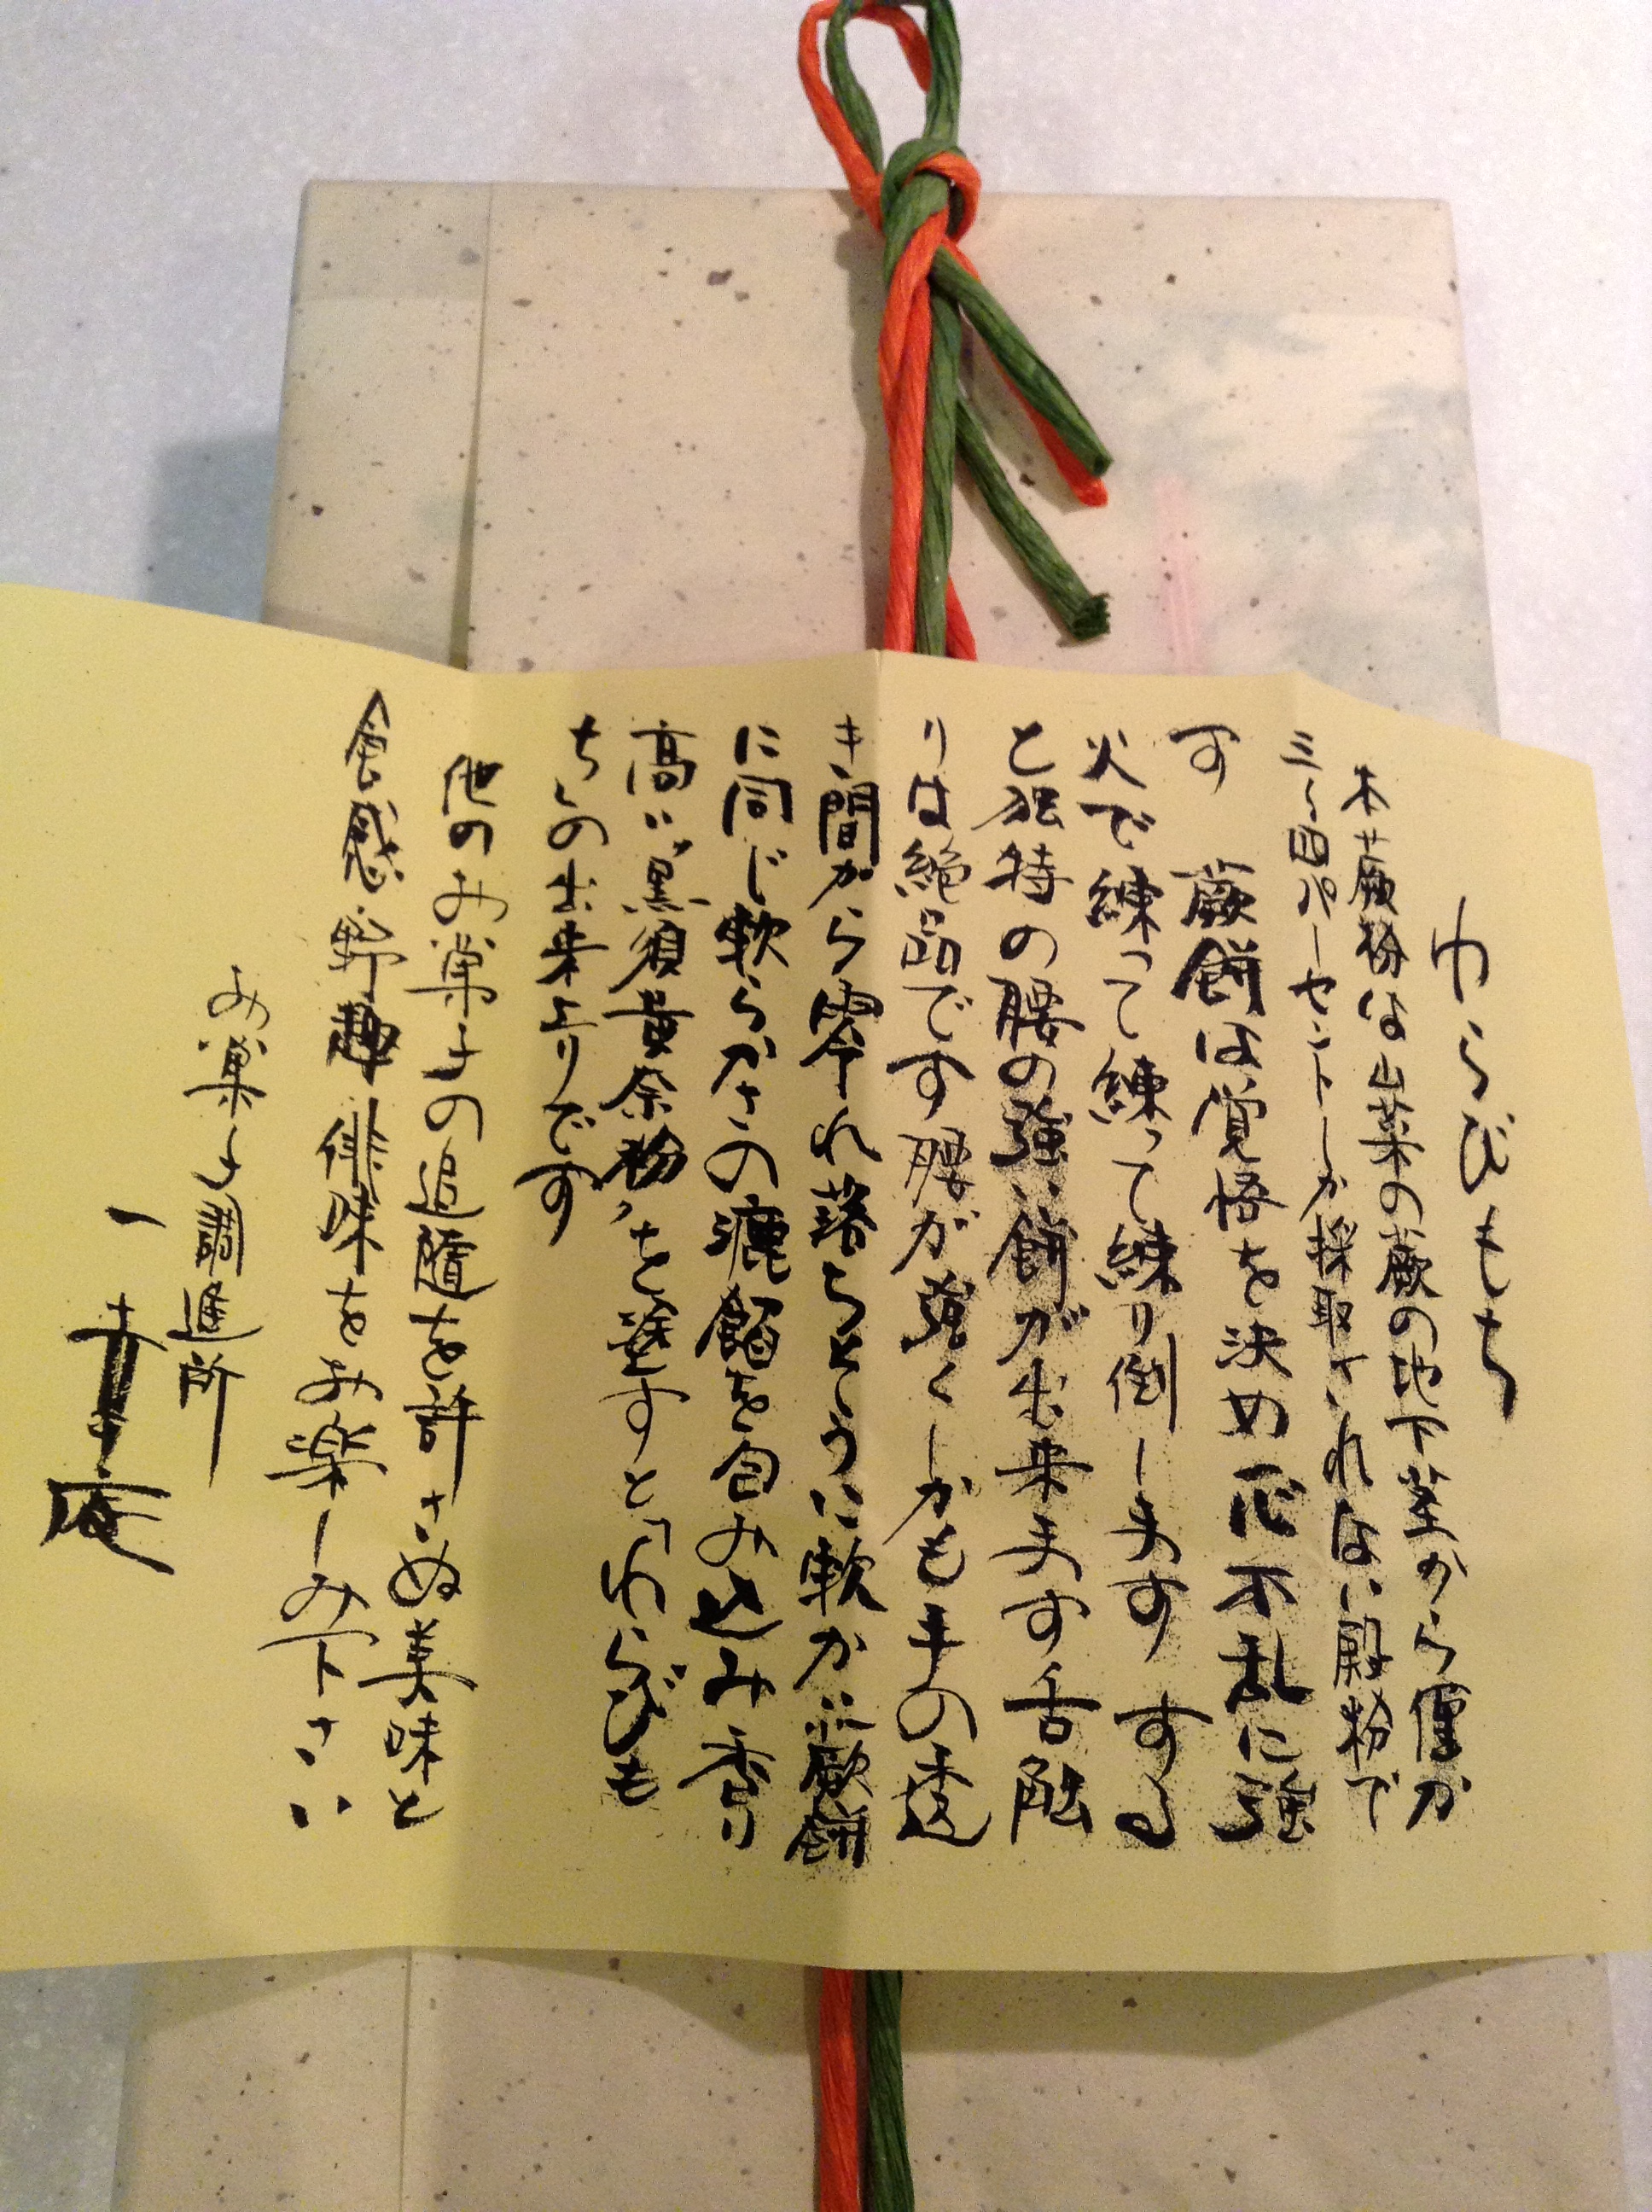 わらびもち
本蕨粉は山菜の蕨の地下茎から僅か
三〜四パーセントしか採取されない澱粉で
す　蕨餅は覚悟を決め一心不乱に強
火で練って練って練り倒します　する
と独特の腰の強い餅が出来ます　舌触
りは絶品です　腰が強くしかも手の透
き間から零れ落ちそうに軟かい蕨餅
に同じ軟らかさの漉餡を包み込み香り
高い〝黒須黄奈粉〟を塗すと「わらびも
ち」の出来上りです
他のお菓子の追随を許さぬ美味と
食感・野趣・俳味をお楽しみ下さい
お菓子調進所
一幸庵